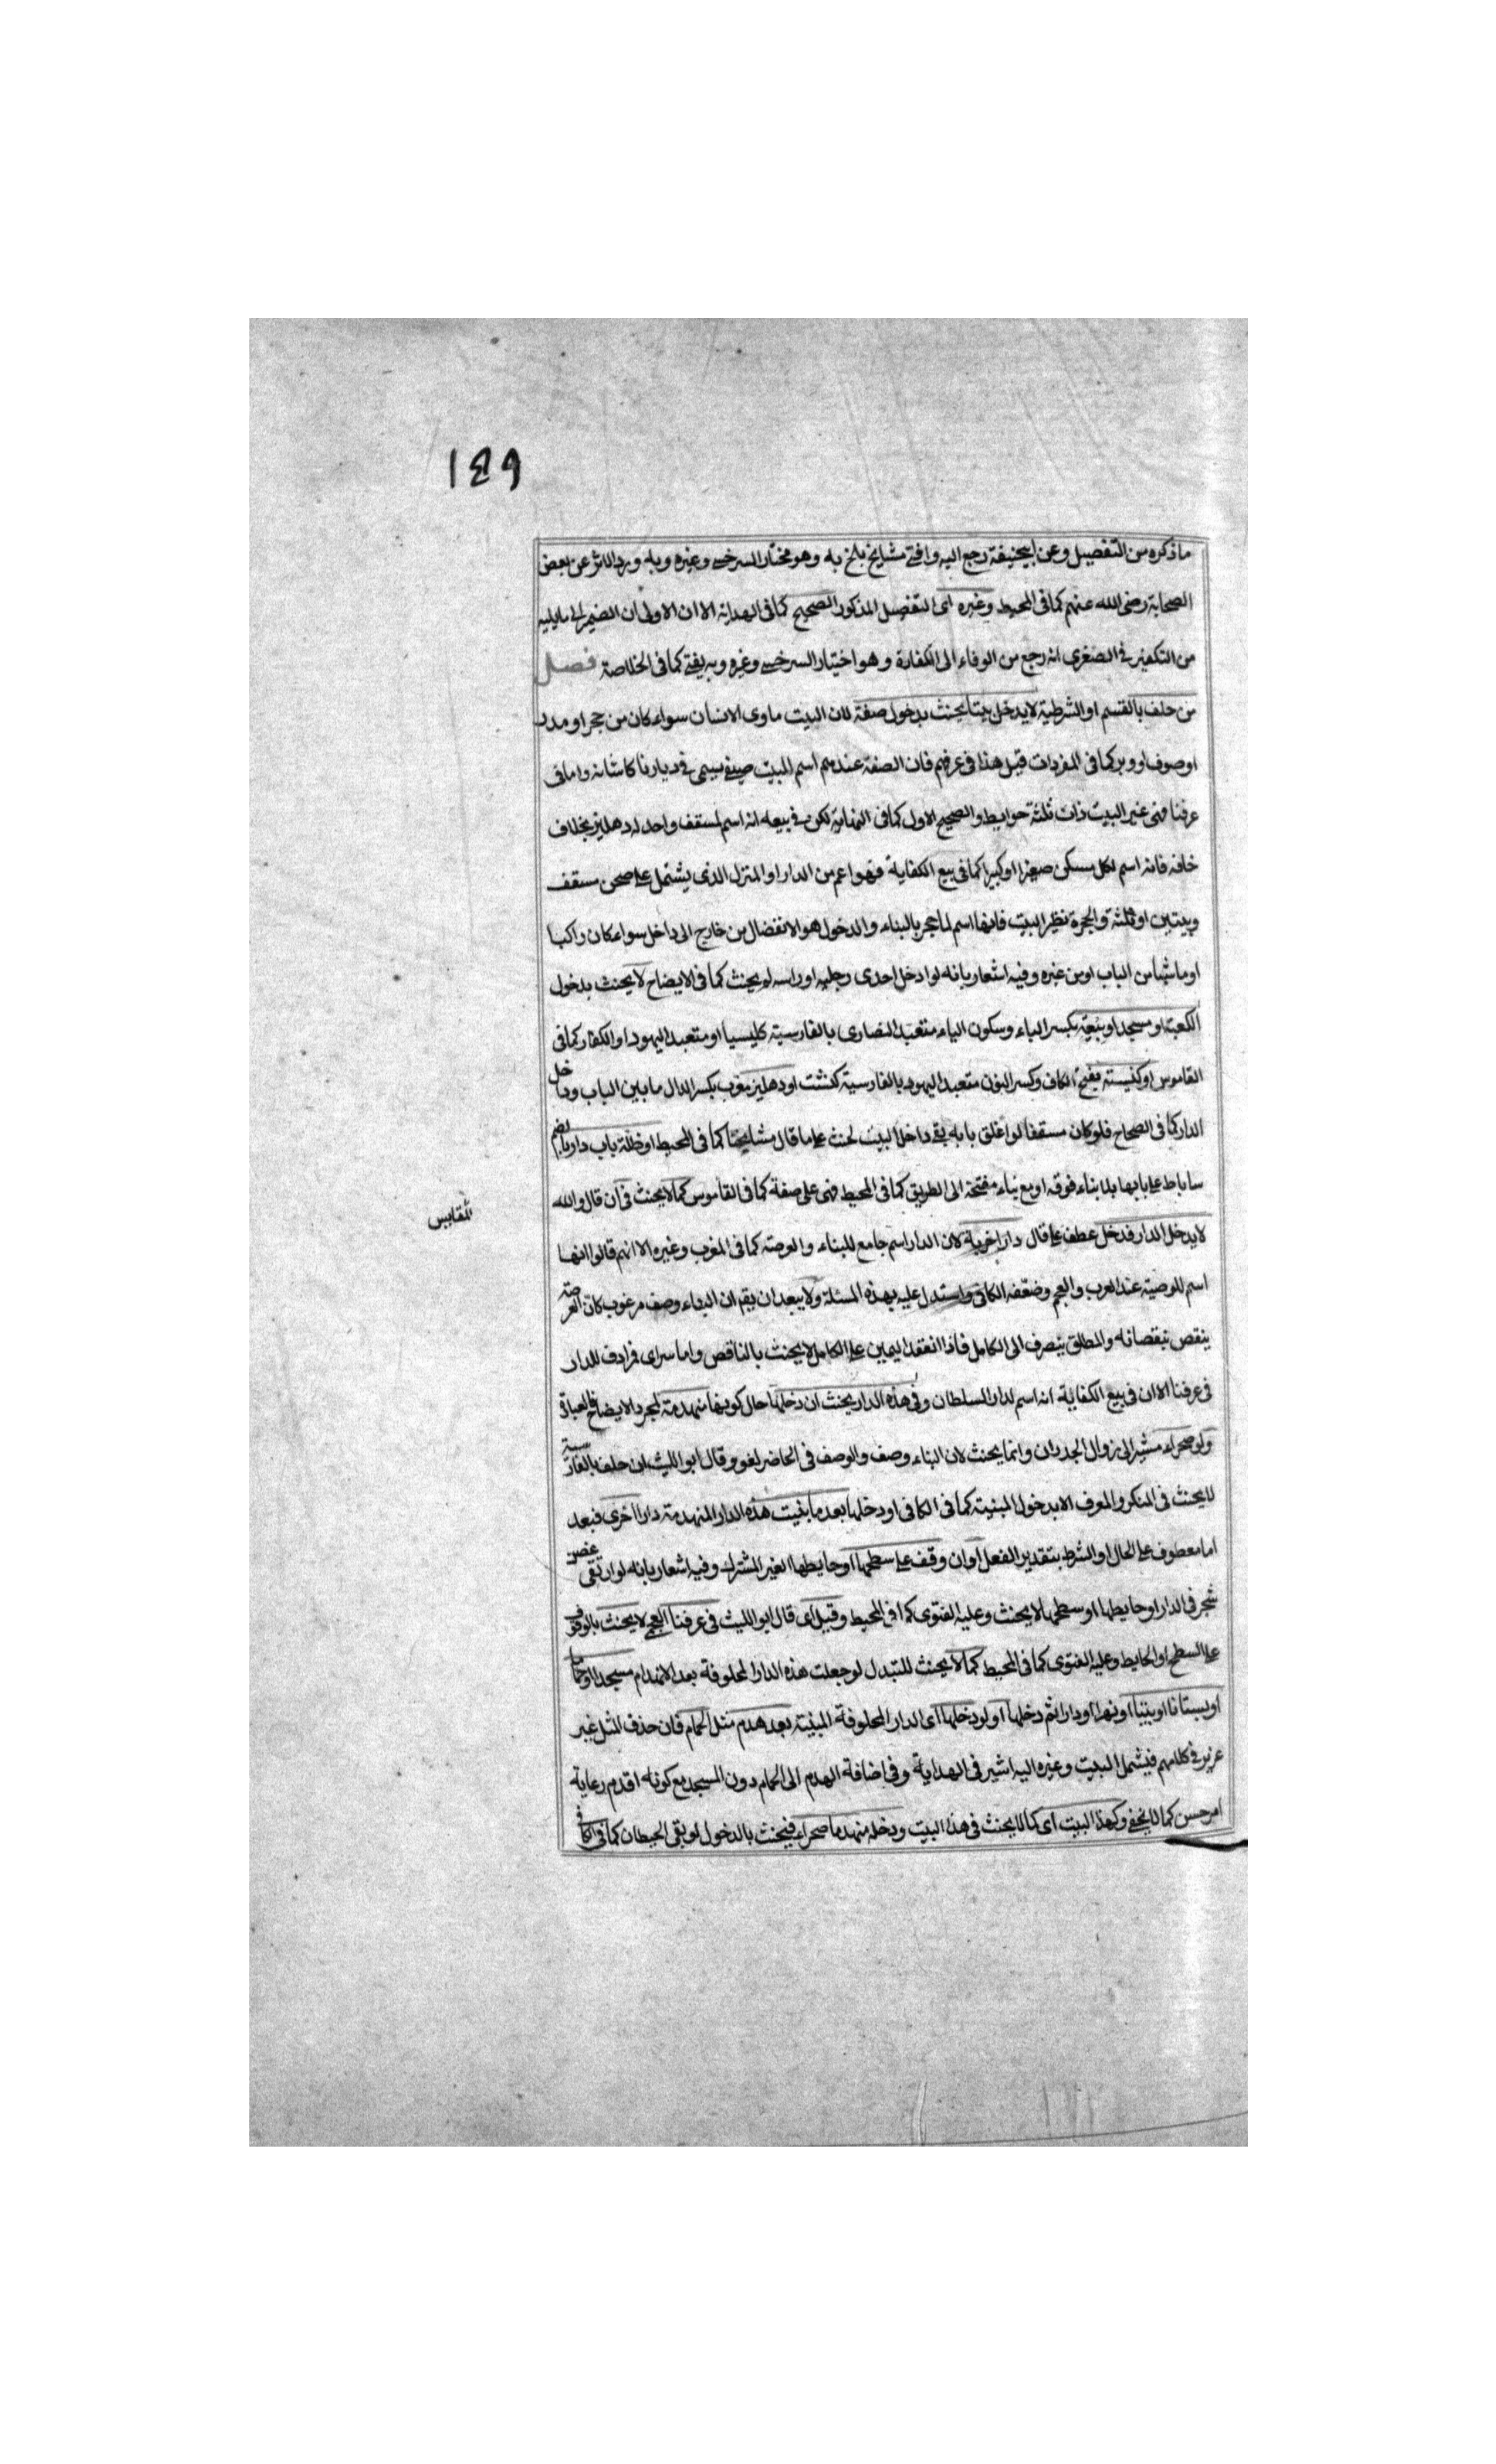 ١٤٩
ما ذكره من التفصيل وعن ابيحنيفة رجع اليه وافتى مشايخ بلخ به وهو مختار السرخسى وغيره وبه ورد الاثر عن بعض
الصحابة رضى الله عنهم كما فى المحيط وغيره اى التفصيل المذكور الصحيح كما فى الهداية الا ان الاولى ان الضمير الى ما يليه
من التكفير فى الصغرى انه رجع من الوفاء الى الكفارة وهو اختيار السرخسى وغيره وبه يفتى كما فى الخلاصة فصل
من حلف بالقسم او الشرطية لا يدخل بيتا يحنث بدخول صفة لان البيت ماوى الانسان سواء كان من حجر او مدر
او صوف او وبر كما فى المفردات قيل هذا فى عرفهم فان الصفة عندهم اسم لبيت صيفى يسمى فى ديارنا كاشانه واما فى
عرفنا فهى غير البيت ذات ثلثة حوايط والصحيح الاول كما فى النهاية لكن فى بيعه انه اسم لمسقف واحد له دهليز بخلاف
خانه فانه اسم لكل مسكن صغيرا او كبيرا كما فى بيع الكفاية فهو اعم من الدار او المنزل الذى يشتمل على صحن مسقف
وبيتين او ثلثة والحجرة نظير البيت فانها اسم لما حجر بالبناء والدخول هو الانفصال من خارج الى داخل سواء كان راكبا
او ماشيا من الباب او من غيره وفيه اشعار بانه لو ادخل احدى رجليه او راسه لم يحنث كما فى الايضاح لا يحنث بدخول
الكعبة او مسجد او بيعة بكسر الباء وسكون الياء متعبد النصارى بالفارسية كليسيا او متعبد اليهود او الكفار كما فى
القاموس او كنيسة بفتح الكاف وكسر النون متعبد اليهود بالفارسية كنشت او دهليز معرب بكسر الدال ما بين الباب وداخل
الدار كما فى الصحاح فلو كان مسقفا لو اغلق بابه بقى داخل البيت لحنث على ما قال مشايخنا كما فى المحيط او ظلة باب دار بالضم
ساباط على بابها بلا بناء فوقه او مع بناء مفتحة الى الطريق كما فى المحيط فهى على صفة كما فى القاموس كما لا يحنث فى ان قال والله
لا يدخل الدار فدخل عطف على قال دارا خربة لان الدار اسم جامع للبناء والعرصة كما فى المغرب وغيره الا انهم قالوا انها
اسم للعرصة عند العرب والعجم وضعفه الكافى واستدل عليه بهذه المسئلة ولا يبعد ان يقم ان البناء وصف مرغوب كان العرصة
ينقص بنقصانه والمطلق ينصرف الى الكامل فاذا انعقد اليمين على الكامل لا يحنث بالناقص واما سراى فرادف للدار
فى عرفنا الا ان فى بيع الكفاية انه اسم لدار السلطان وفى هذه الدار يحنث ان دخلها حال كونها منهدمة لمجرد الايضاح فالعباق
ولو صحراء مشير الى زوال الجدران وانما يحنث لان البناء وصف والوصف فى الحاضر لغو وقال ابو الليث ان حلف بالفارسية
لا يحنث فى المنكر والمعرف الا بدخول المبنية كما فى الكافى او دخلها بعد ما بنيت هذه الدار المنهدمة دارا اخرى فبعد
اما معطوف على الحال او الشرط بتقدير الفعل او ان وقف على سطحها او حايطها الغير المشترك وفيه اشعار بانه لو ارتقى غصن
شجر فى الدار او حايطها او سطحها لا يحنث وعليه الفتوى كما فى المحيط وقيل اى قال ابو الليث فى عرفنا العجم لا يحنث بالوقوف
على السطح او الحايط وعليه الفتوى كما فى المحيط كما لا يحنث للتبدل لو جعلت هذه الدار المحلوفة بعد الانهدام مسجدا او حماما
او بستانا او بيتا او نهرا او دارا ثم دخلها او لو دخلها اى الدار المحلوفة المبنية بعد هدم مثل الحمام فان حذف المثل غير
عزيز فى كلامهم فيشمل البيت وغيره اليه اشير فى الهداية وفى اضافة الهدم الى الحمام دون المسجد مع كونه اقدم رعاية
امر حسن كما لا يخفى وكهذا البيت اى كما لا يحنث فى هذا البيت ودخله منهدما صحراء فيحنث بالدخول لو بقى الحيطان كما فى الكافى